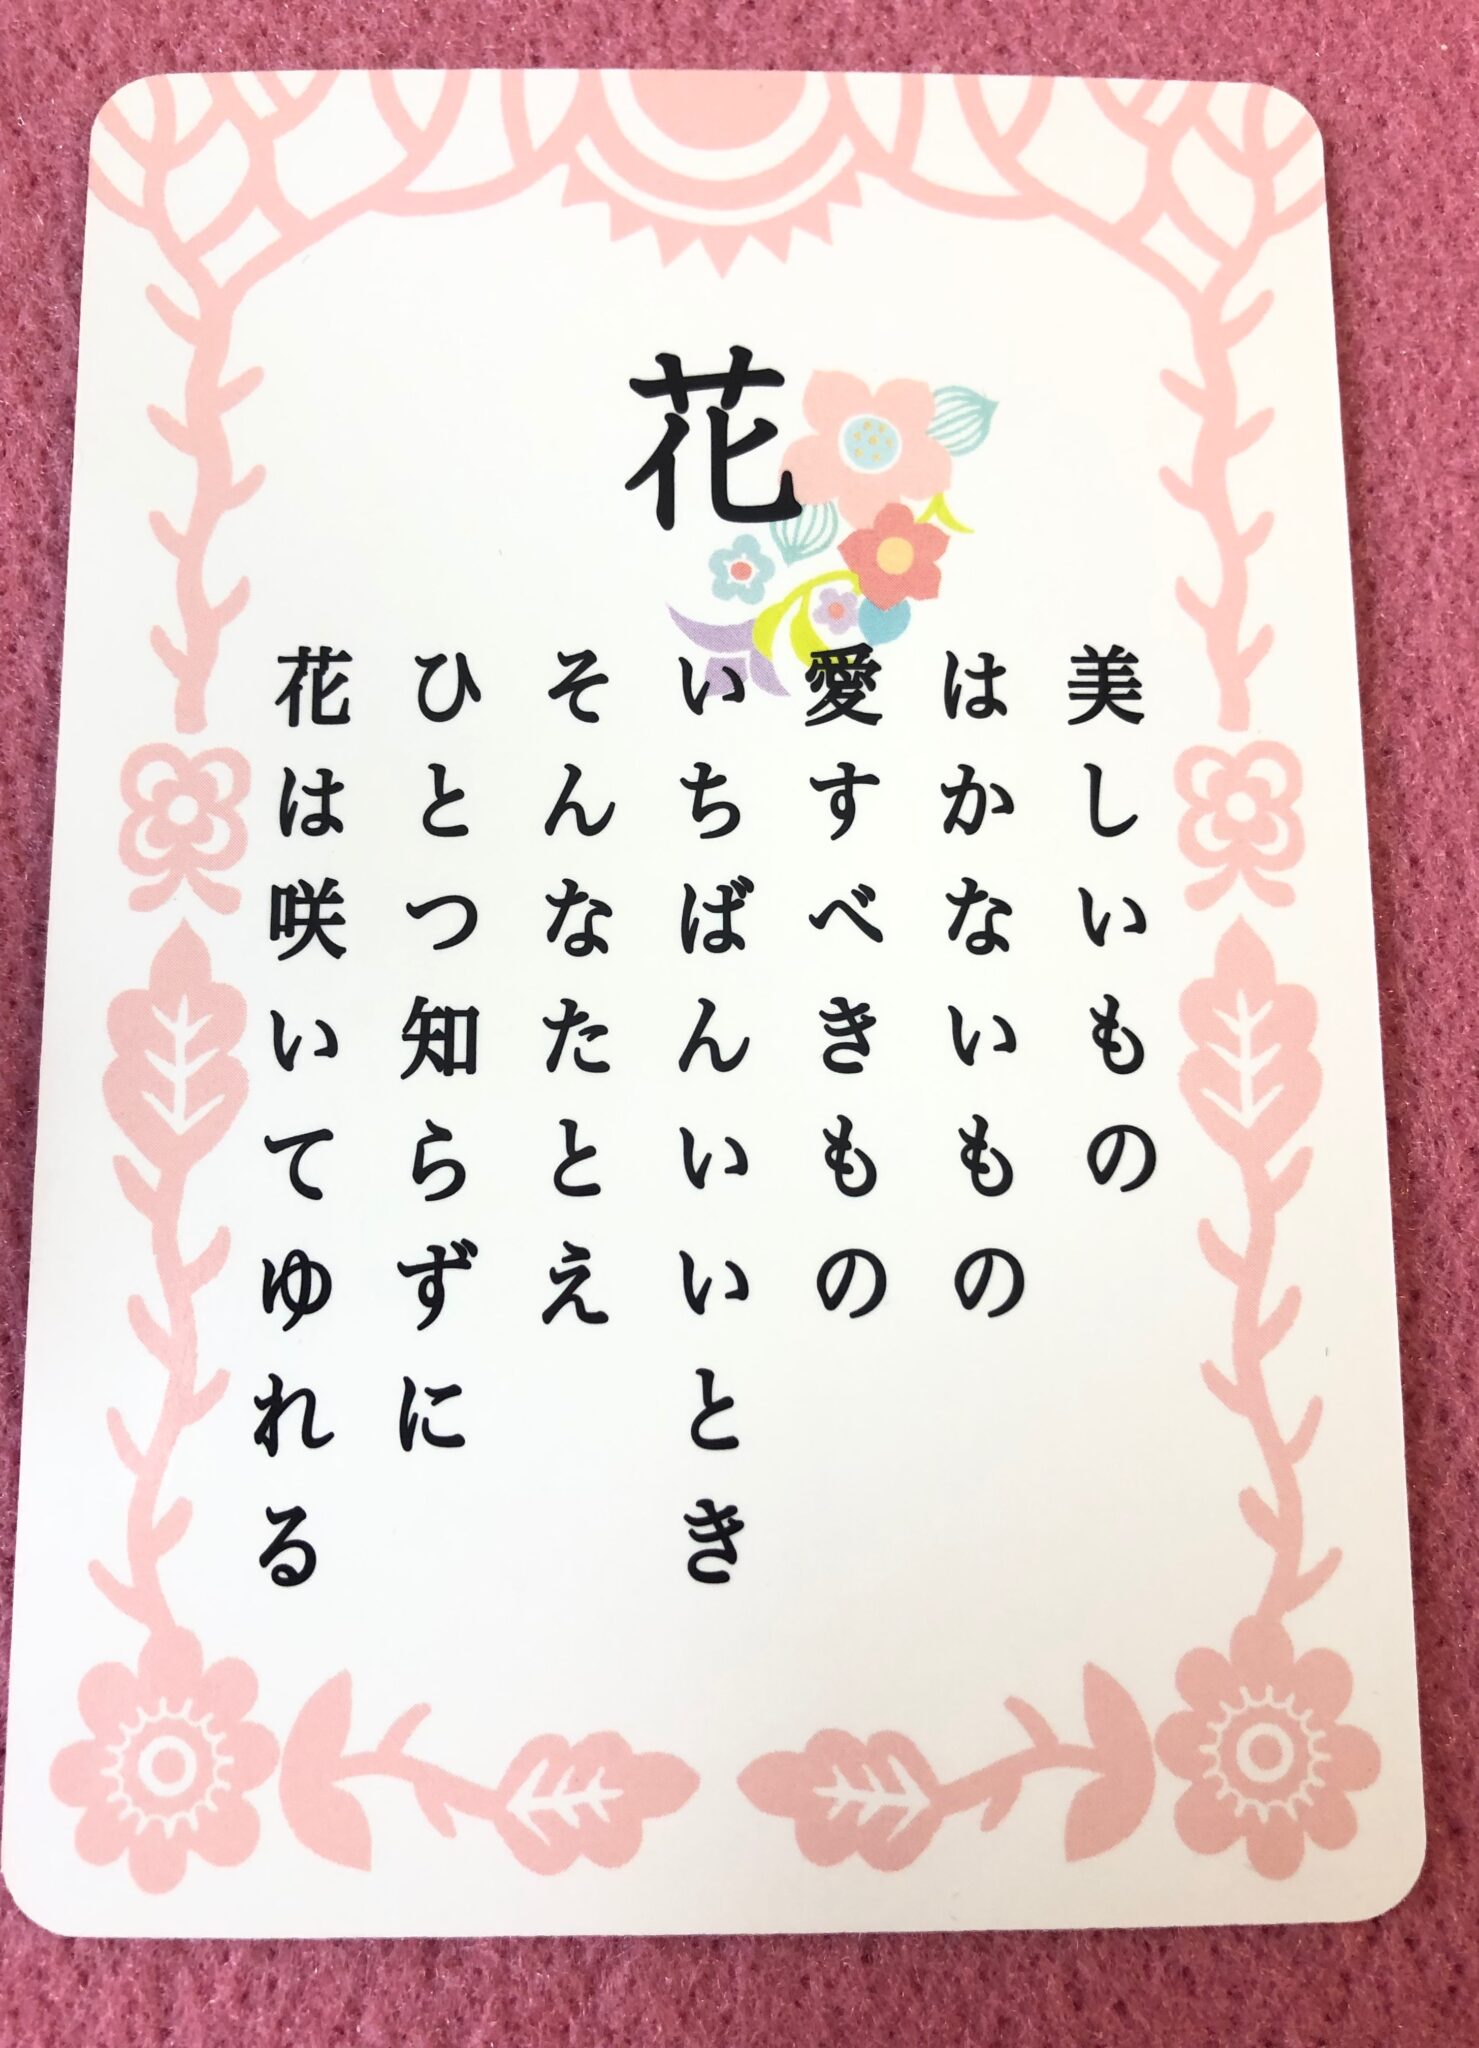 花
美しいもの
はかないもの
愛すべきもの
いちばんいいとき
そんなたとえ
ひとつ知らずに
花は咲いてゆれる